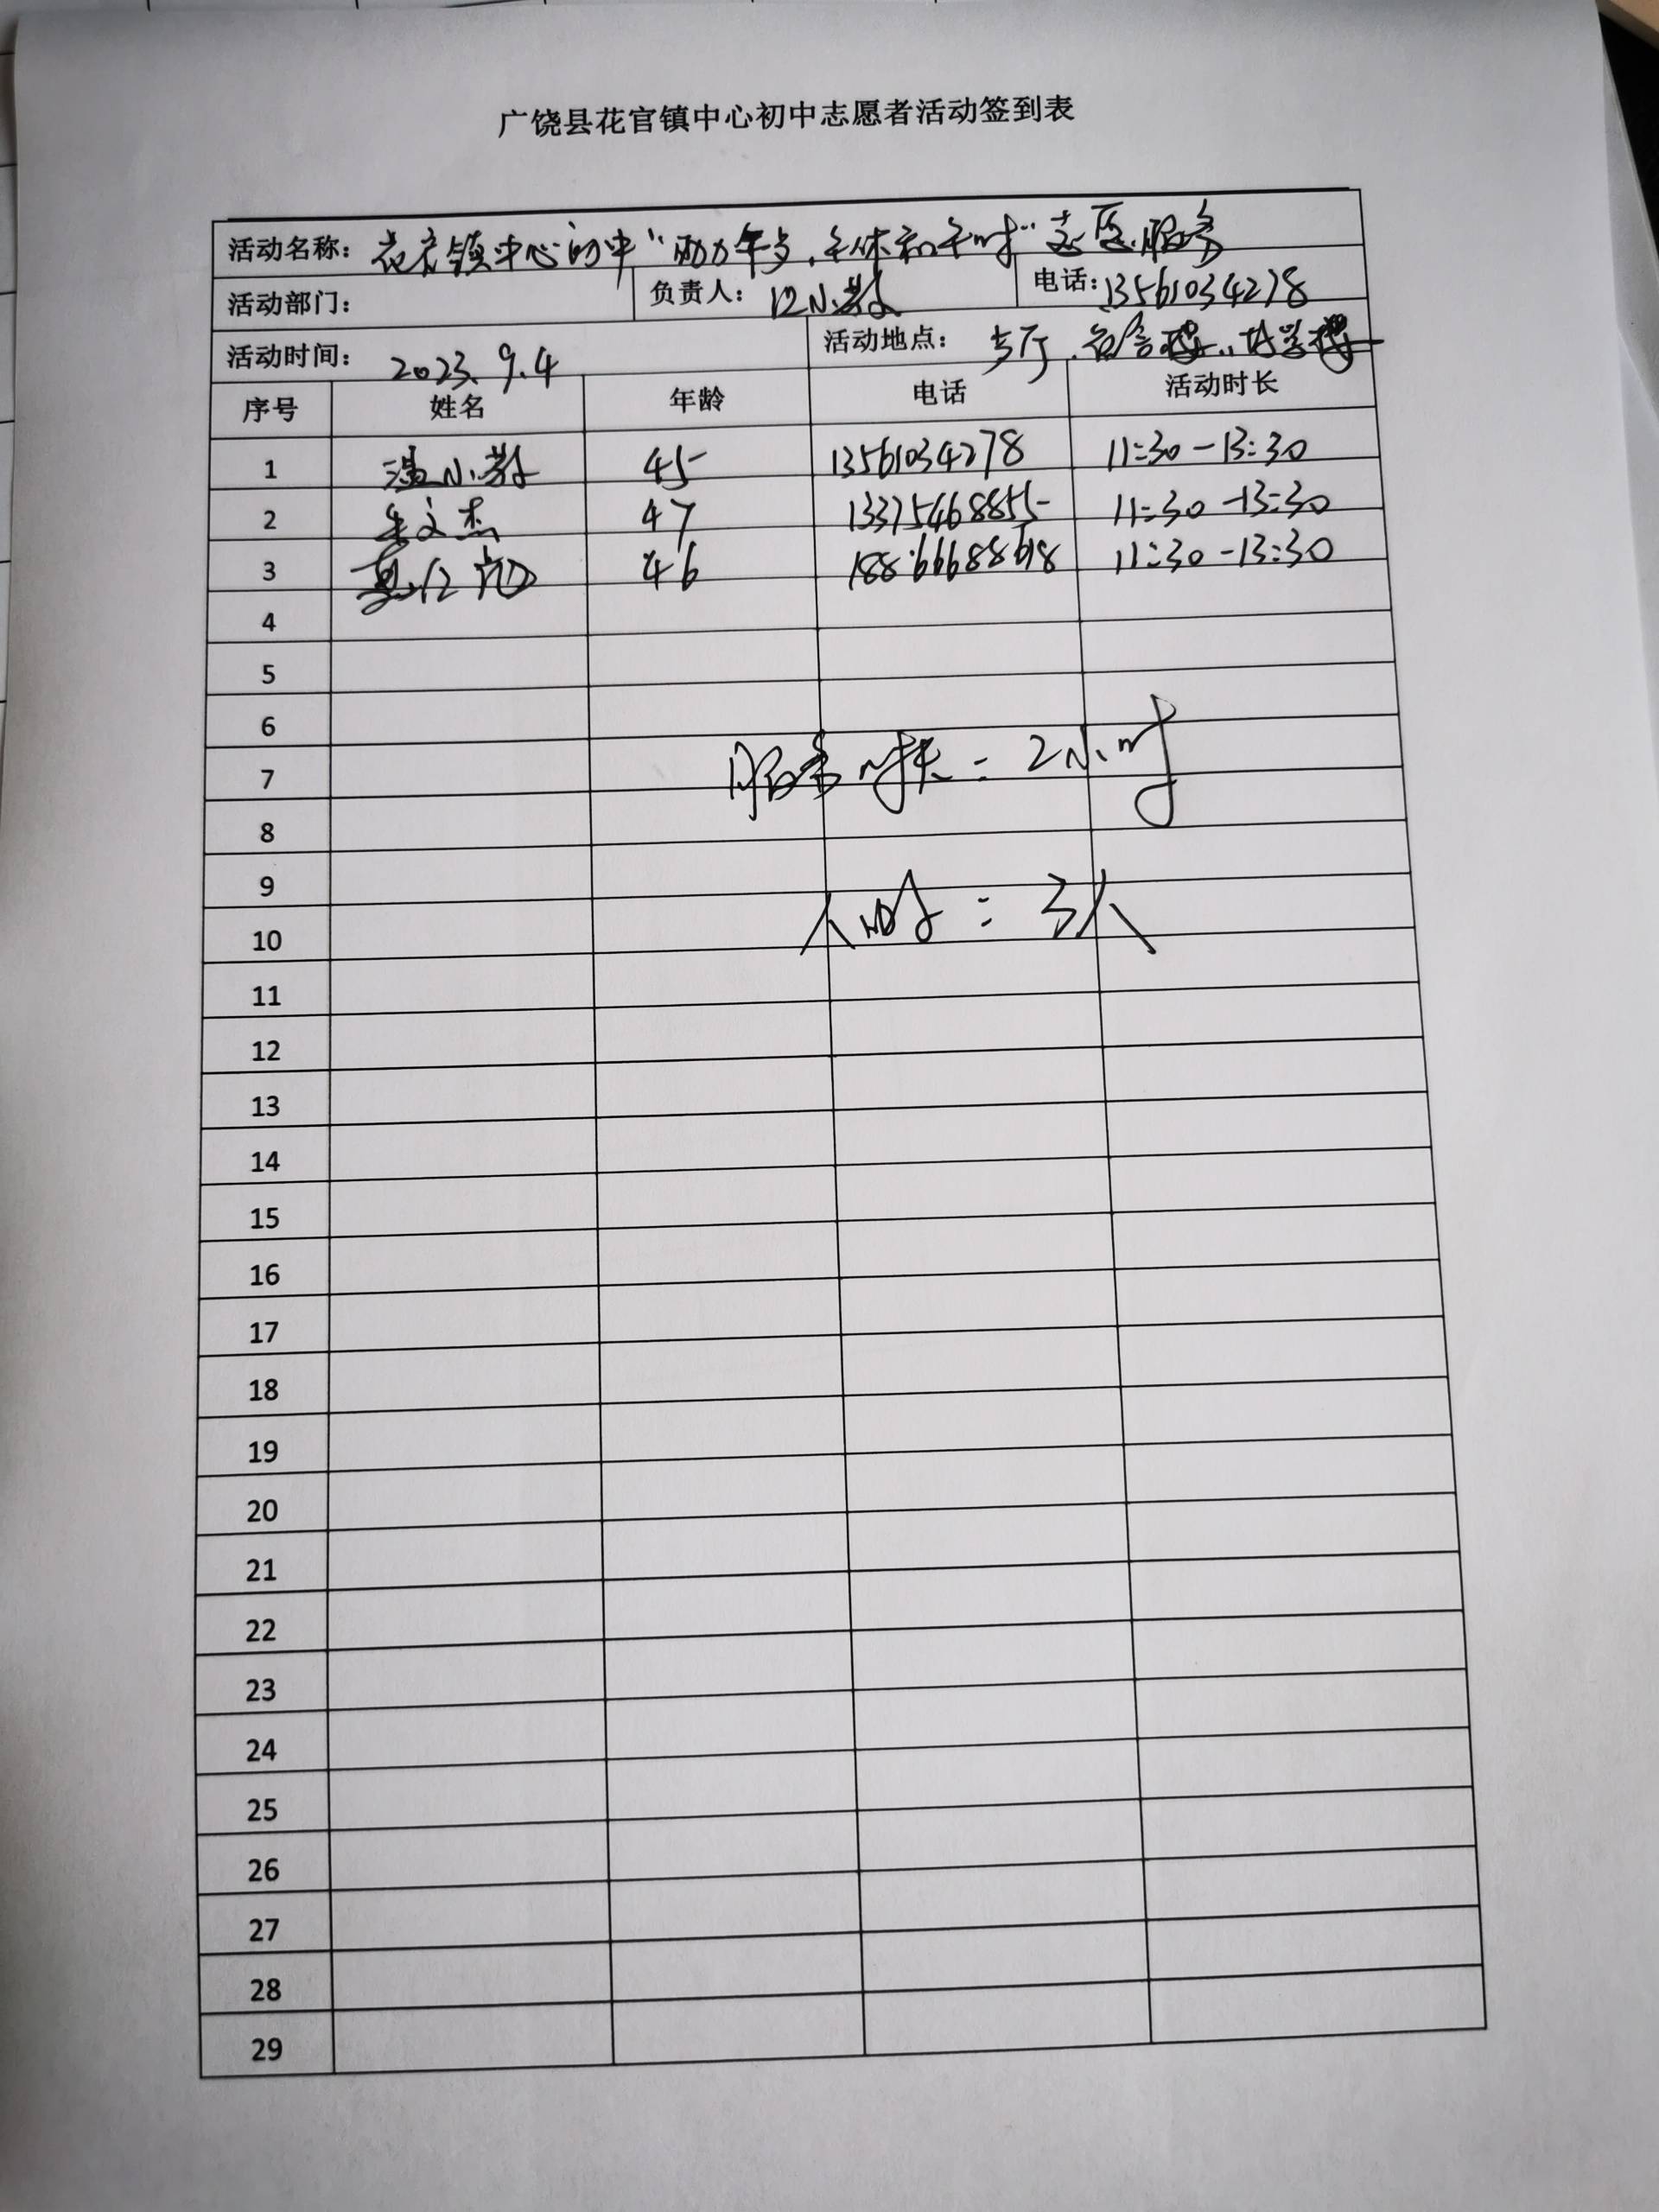 广饶县花官镇中心初中志愿者活动签到表
活动名称: 花官镇中心初中“助力午 志愿服务
活动部门: 负责人: 小 电话: 13561034278
活动时间: 2023.9.4 活动地点: 餐厅、宿舍楼、教学楼
序号 姓名 年龄 电话 活动时长
1 温小 45 13561034278 11:30-13:30
2 朱文杰 47 13375468855 11:30-13:30
3 46 18866688618 11:30-13:30
4
5
6
7
服务时长:2小时
8
9
10
人员:3人
11
12
13
14
15
16
17
18
19
20
21
22
23
24
25
26
27
28
29